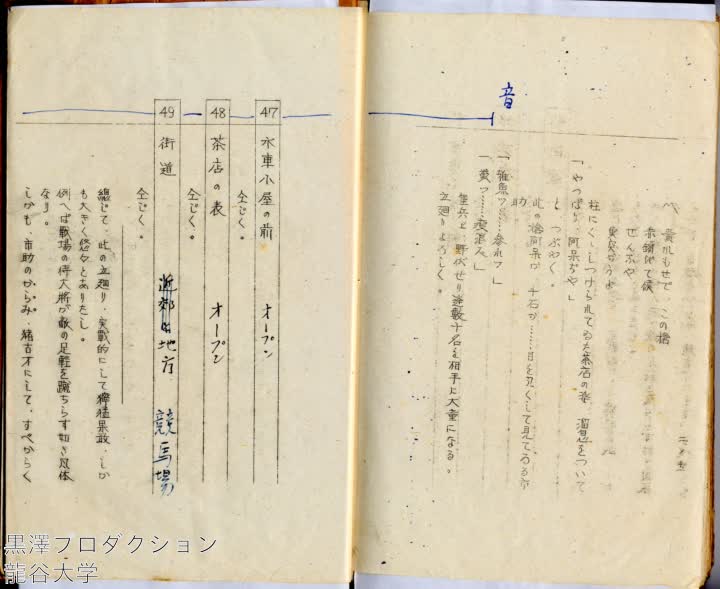 音
この槍
せんぶや
柱にくゝしつけられてゐる茶店の爺、溜息をついて
「やっぱり、阿呆ぢや」
と、つぶやく。
此の槍阿呆が、千石が……目を丸くして見てゐる市
助。
「雑魚ッ……参れッ」
「糞ッ……痩浪人」
雑兵と、野伏せり達数十名を相手に大童になる。
立廻りよろしく。
47 水車小屋の前 オープン
仝じく。
48 茶店の表 オープン
仝じく。
49 街道 近郊の地方 競馬場
仝じく。
総じて、此の立廻り、実戦的にして獰猛果敢、しか
も大きく悠々とありたし。
例へば戦場の侍大将が敵の足軽を蹴ちらす如き風体
なり。
しかも、市助のからみ、稀古才にして、すべからく
黒澤プロダクション
龍谷大学